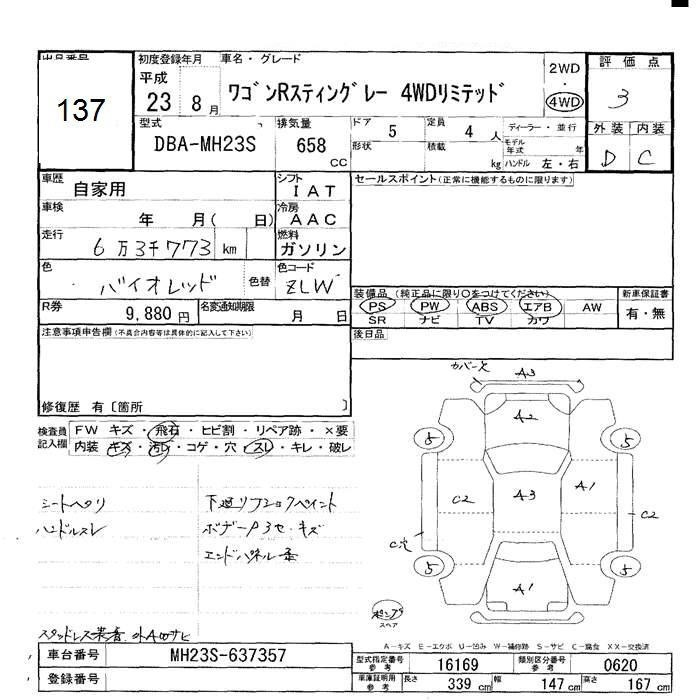 出品番号
137
初度登録年月
平成
23 8月
車名・グレード
ワゴンRスティングレー 4WDリミテッド
2WD
・
4WD
評価点
3
型式
DBA-MH23S
排気量
658
CC
ドア
5
定員
4 人
ディーラー・並行
形状
積載
kg
モデル年式
年
ハンドル 左・右
外装 内装
D C
車歴
自家用
シフト
IAT
セールスポイント(正常に機能するものに限ります)
車検
年 月( 日)
冷房
AAC
走行
6万3千773 km
燃料
ガソリン
色
バイオレッド
色替
色コード
ZLW
装備品 (純正品に限り○をつけてください)
PS PW ABS エアB AW
SR ナビ TV カワ
新車保証書
有・無
R券
9,880 円
名変通知期限
月 日
後日品
注意事項申告欄(不具合内容等は具体的に記入して下さい)
修復歴 有〔箇所 〕
検査員記入欄
FW キズ・飛石・ヒビ割・リペア跡・×要
内装 キズ・汚レ・コゲ・穴・スレ・キレ・破レ
A3
A2
5 5
C2 A3 A1 C2
C穴
5 5
A1
スペア
シートヘタリ
ハンドルスレ
エンドパネル
A－キズ E－エクボ U－凹み W－補修跡 S－サビ C－腐食 XX－交換済
車台番号
MH23S-637357
登録番号
型式指定番号
参考
16169
類別区分番号
参考
0620
車庫証明用
参考
長さ 339 cm
幅 147 cm
高さ 167 cm